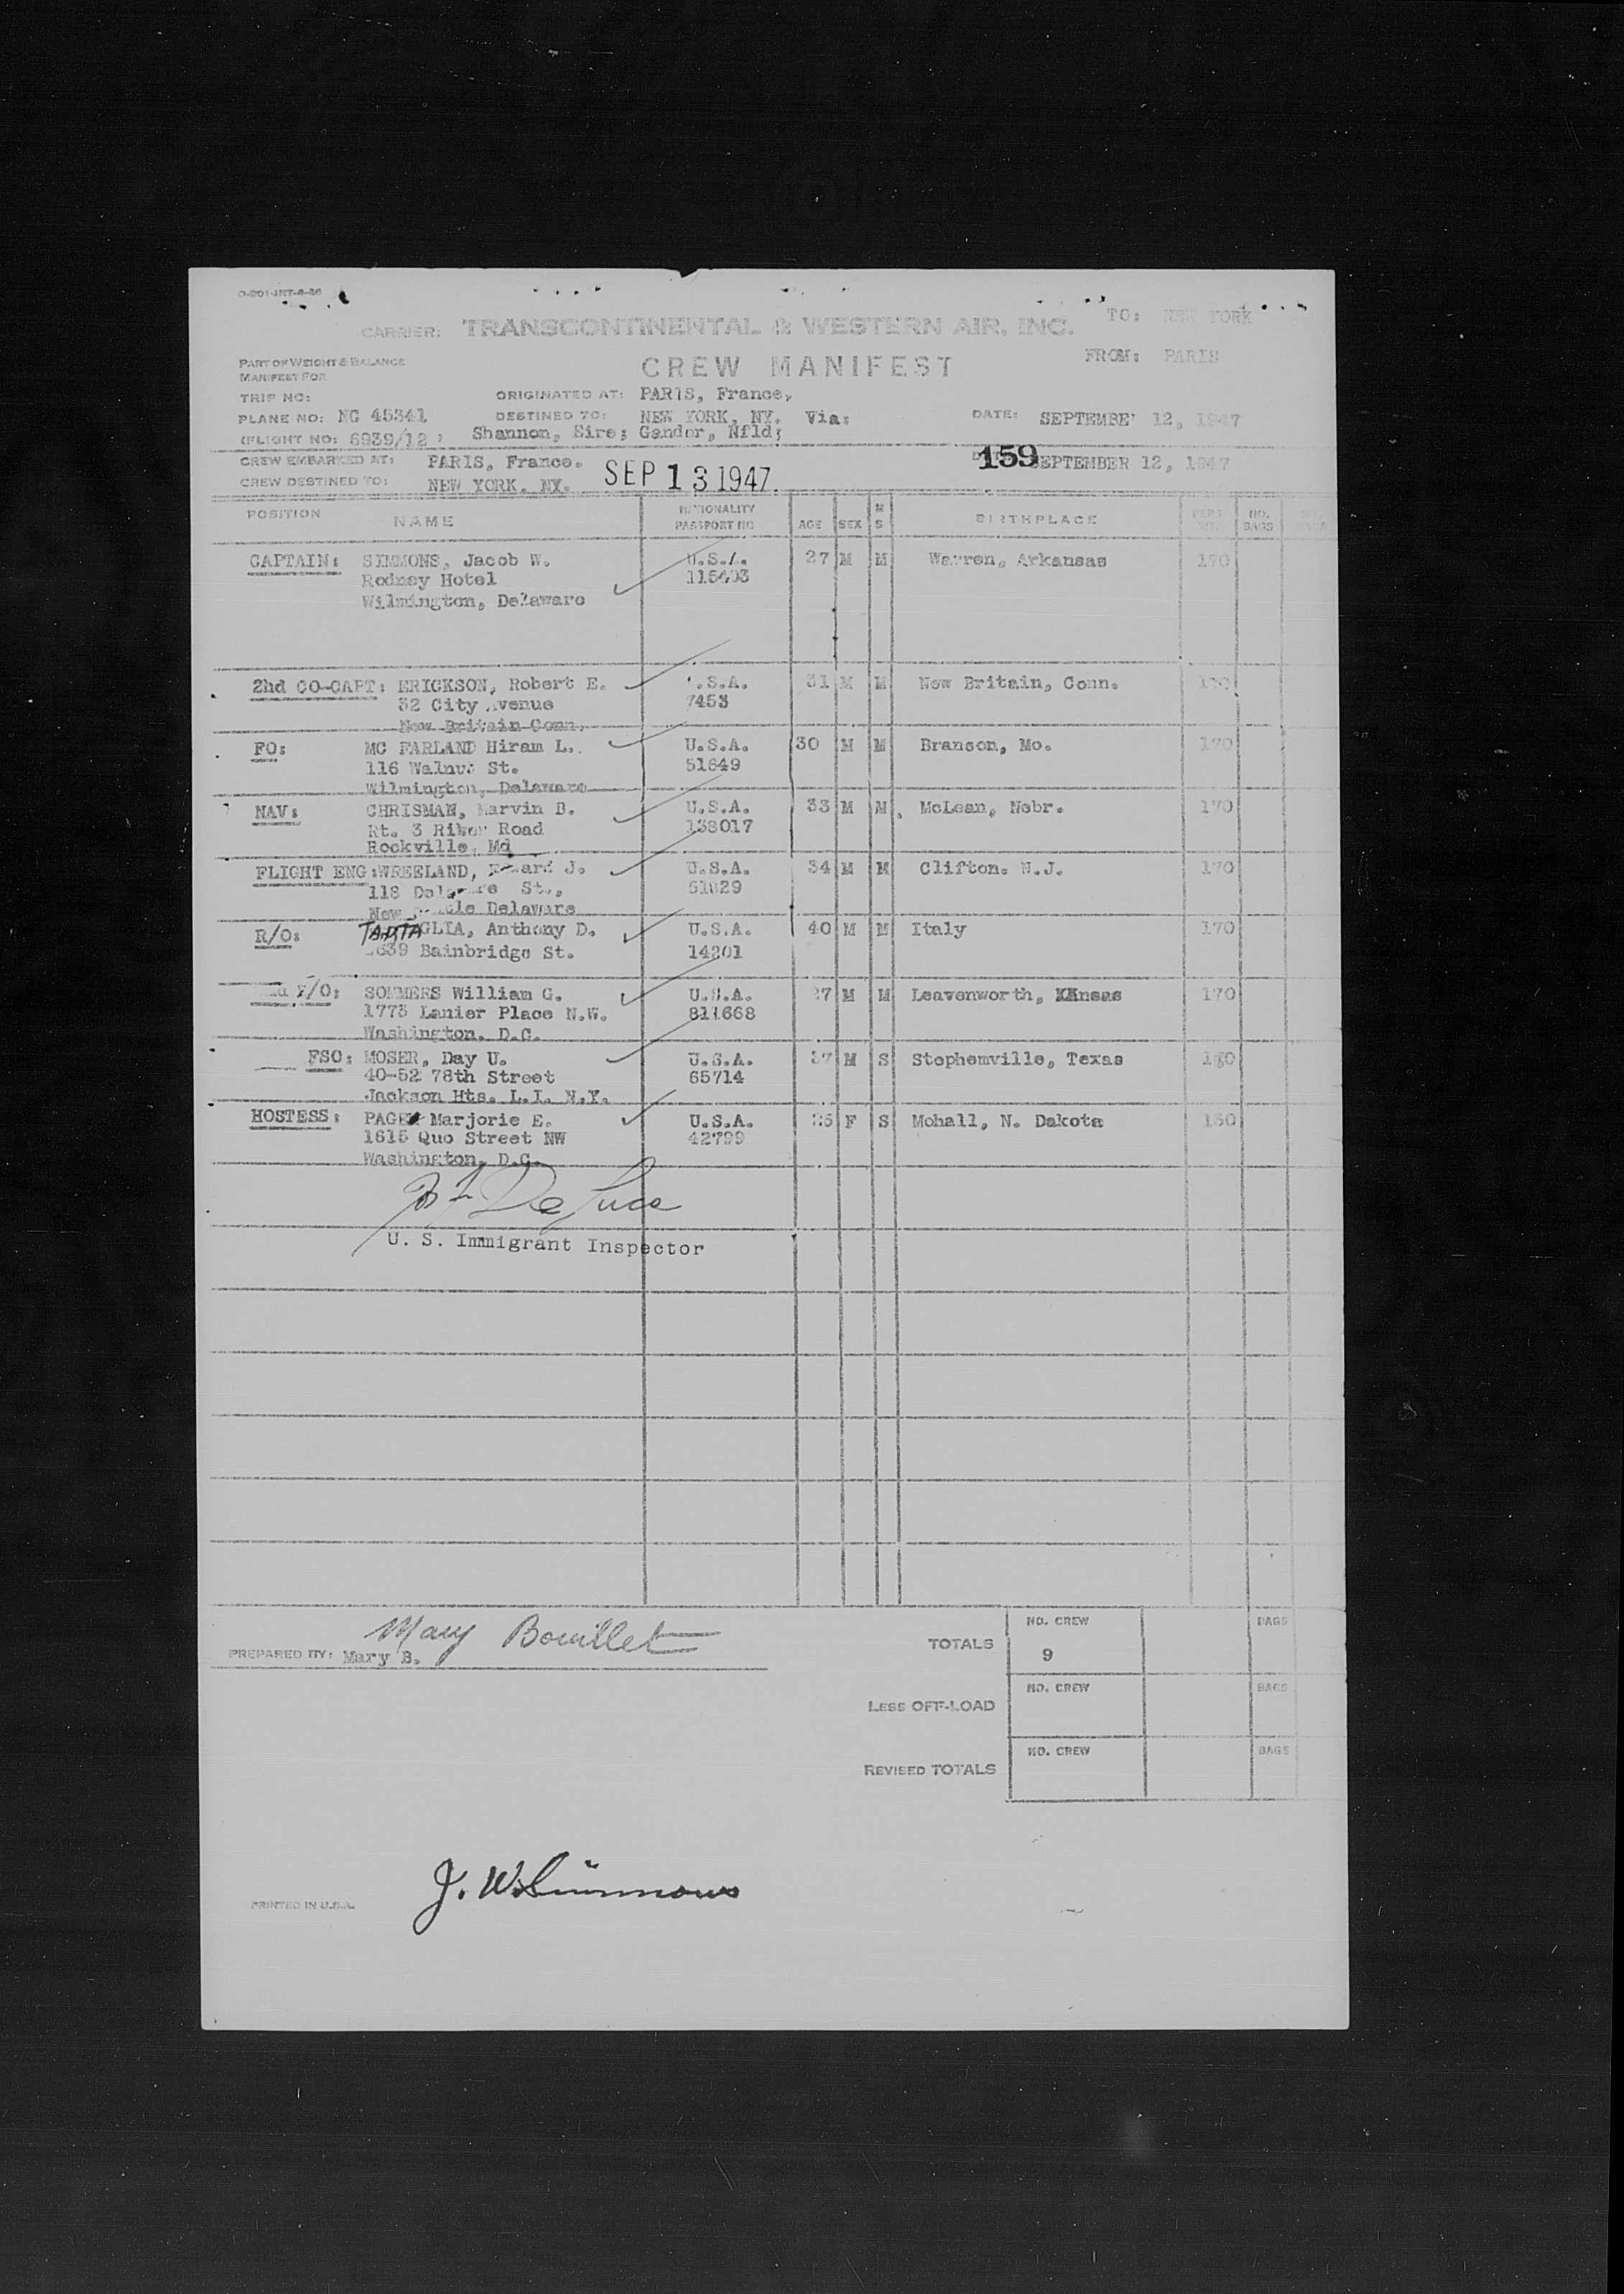 O-201-INT-4-46
CARRIER: TRANSCONTINENTAL & WESTERN AIR, INC. TO: NEW YORK
PART OF WEIGHT & BALANCE
MANIFEST FOR
CREW MANIFEST FROM: PARIS
TRIP NO: ORIGINATED AT: PARIS, France,
PLANE NO: NC 45341 DESTINED TO: NEW YORK, NY. Via: DATE: SEPTEMBE 12, 1947
(FLIGHT NO: 6939/12 ) Shannon, Eire; Gander, Nfld;
CREW EMBARKED AT: PARIS, France. SEP 13 1947 159 SEPTEMBER 12, 1947
CREW DESTINED TO: NEW YORK. NY.
POSITION NAME NATIONALITY PASSPORT NO AGE SEX M S BIRTHPLACE PERS WT. NO. BAGS
CAPTAIN: SIMMONS, Jacob W. U.S.A. 27 M M Warren, Arkansas 170
Rodney Hotel 115403
Wilmington, Delaware
2hd CO-CAPT: ERICKSON, Robert E. .S.A. 31 M M New Britain, Conn. 170
32 City Avenue 7453
New Britain Conn.
FO: MC FARLAND Hiram L. U.S.A. 30 M M Branson, Mo. 170
116 Walnut St. 51649
Wilmington, Delaware
NAV: CHRISMAN, Marvin B. U.S.A. 33 M M McLean, Nebr. 170
Rt. 3 River Road 138017
Rockville, Md
FLIGHT ENG: WREELAND, Edward J. U.S.A. 34 M M Clifton. N.J. 170
118 Delaware St., 51829
New Delaware
R/O: TARTAGLIA, Anthony D. U.S.A. 40 M M Italy 170
639 Bainbridge St. 14201
F/O: SOMMERS William G. U.S.A. 27 M M Leavenworth, KAnsas 170
1773 Lanier Place N.W. 811668
Washington, D.C.
FSO: MOSER, Day U. U.S.A. 37 M S Stephemville, Texas 170
40-52 78th Street 65714
Jackson Hts. L.I. N.Y.
HOSTESS: PAGE Marjorie E. U.S.A. 25 F S Mohall, N. Dakota 130
1615 Quo Street NW 42799
Washington, D.C.
De Luca
U. S. Immigrant Inspector
Mary Bouillet
PREPARED BY: Mary B.
TOTALS NO. CREW 9 BAGS
LESS OFF-LOAD NO. CREW BAGS
REVISED TOTALS NO. CREW BAGS
J. W. Simmons
PRINTED IN U.S.A.